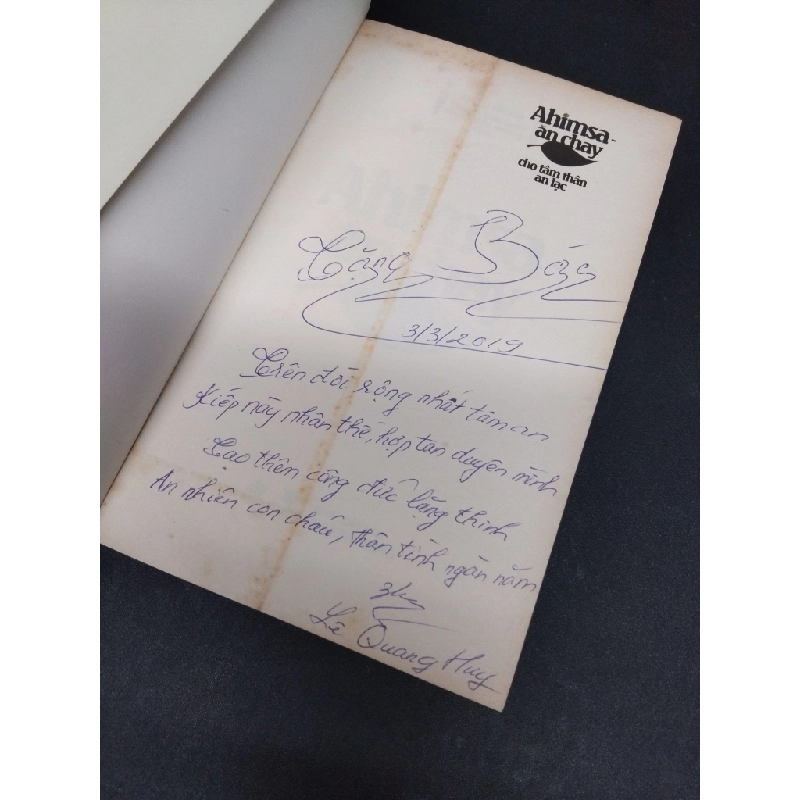 Ahimsa-
ăn chay
cho tâm thân
an lạc
Tặng Bác
3/3/2019
Trên đời rộng nhất tâm an
Kiếp này nhân thế, hợp tan duyên mình
Tạo thêm công đức lặng thinh
An nhiên con cháu, thân tình ngàn năm
Lê Quang Huy